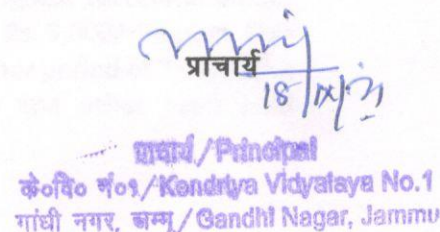 प्राचार्य
18/IX/
प्राचार्य/Principal
के०वि० नं०१/Kendriya Vidyalaya No.1
गांधी नगर, जम्मू/Gandhi Nagar, Jammu